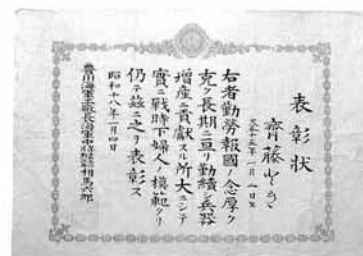 表彰状
齊藤
大正十五年一月一日生
右者勤勞報國ノ念厚ク
克ク長期ニ亘リ勤績シ兵器
増産ニ貢献スル所大ニシテ
實ニ戦時下婦人ノ模範タリ
仍テ茲ニ之ヲ表彰ス
昭和十八年一月四日
豊川海軍工廠長海軍中将 相馬六郎